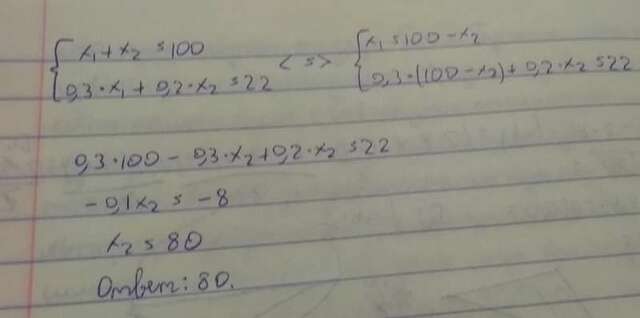 { x₁ + x₂ = 100 <=> { x₁ = 100 - x₂
{ 0,3 · x₁ + 0,2 · x₂ = 22 { 0,3 · (100 - x₂) + 0,2 · x₂ = 22
0,3 · 100 - 0,3 · x₂ + 0,2 · x₂ = 22
- 0,1x₂ = -8
x₂ = 80
Ответ: 80.